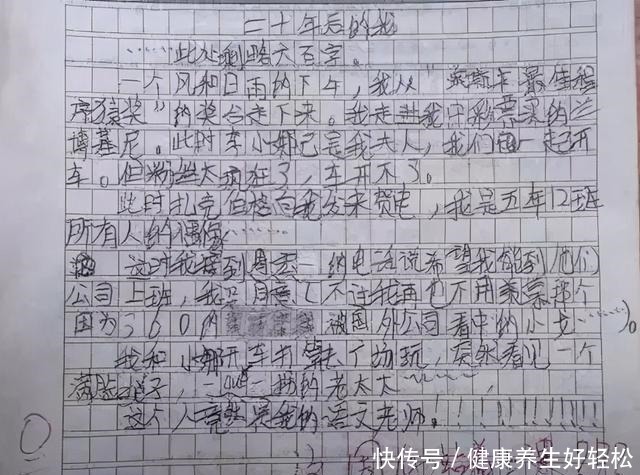 二十年后的我
……此处剩略六百字。
一个风和日雨纳下午，我从"莱斯卡最佳程
序猿奖"纳奖台走下来。我走进我中彩票买纳兰
博基尼。此时李小娜已是我夫人，我们一起开
车。但粉丝太疯狂了，车开不了。
此时扎克伯格向我发来贺电，我是五年12班
所有人纳偶像……
这时我接到周 纳电话说希望我能到他们
公司上班，我只同意（不过我再也不用羡慕那个
因为360纳 被国外公司看中纳小 ……）。
我和小娜开车打算去广场玩，突然看见一个
满脸 子， 纳老太太
这个人竟然是我纳语文老师！！！！！！！！！！
快传号／健康养生好轻松